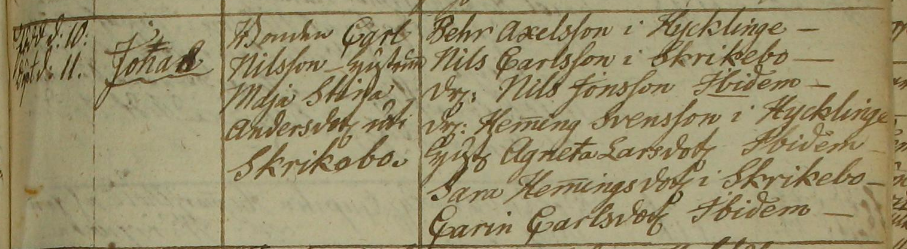 d. 10.
d. 11.
Johan
Bonden Carl
Nilsson Hustrun
Maja Stina
Andersdotr uti
Skrikebo.
Behr Axelsson i Hycklinge —
Nils Carlsson i Skrikebo —
Dr: Nils Jonsson Ibidem —
Dr: Hem̅ing Svensson i Hycklinge
Hust Agneta Larsdotr Ibidem —
Sara Hem̅ingsdotr i Skrikebo —
Carin Carlsdotr Ibidem —